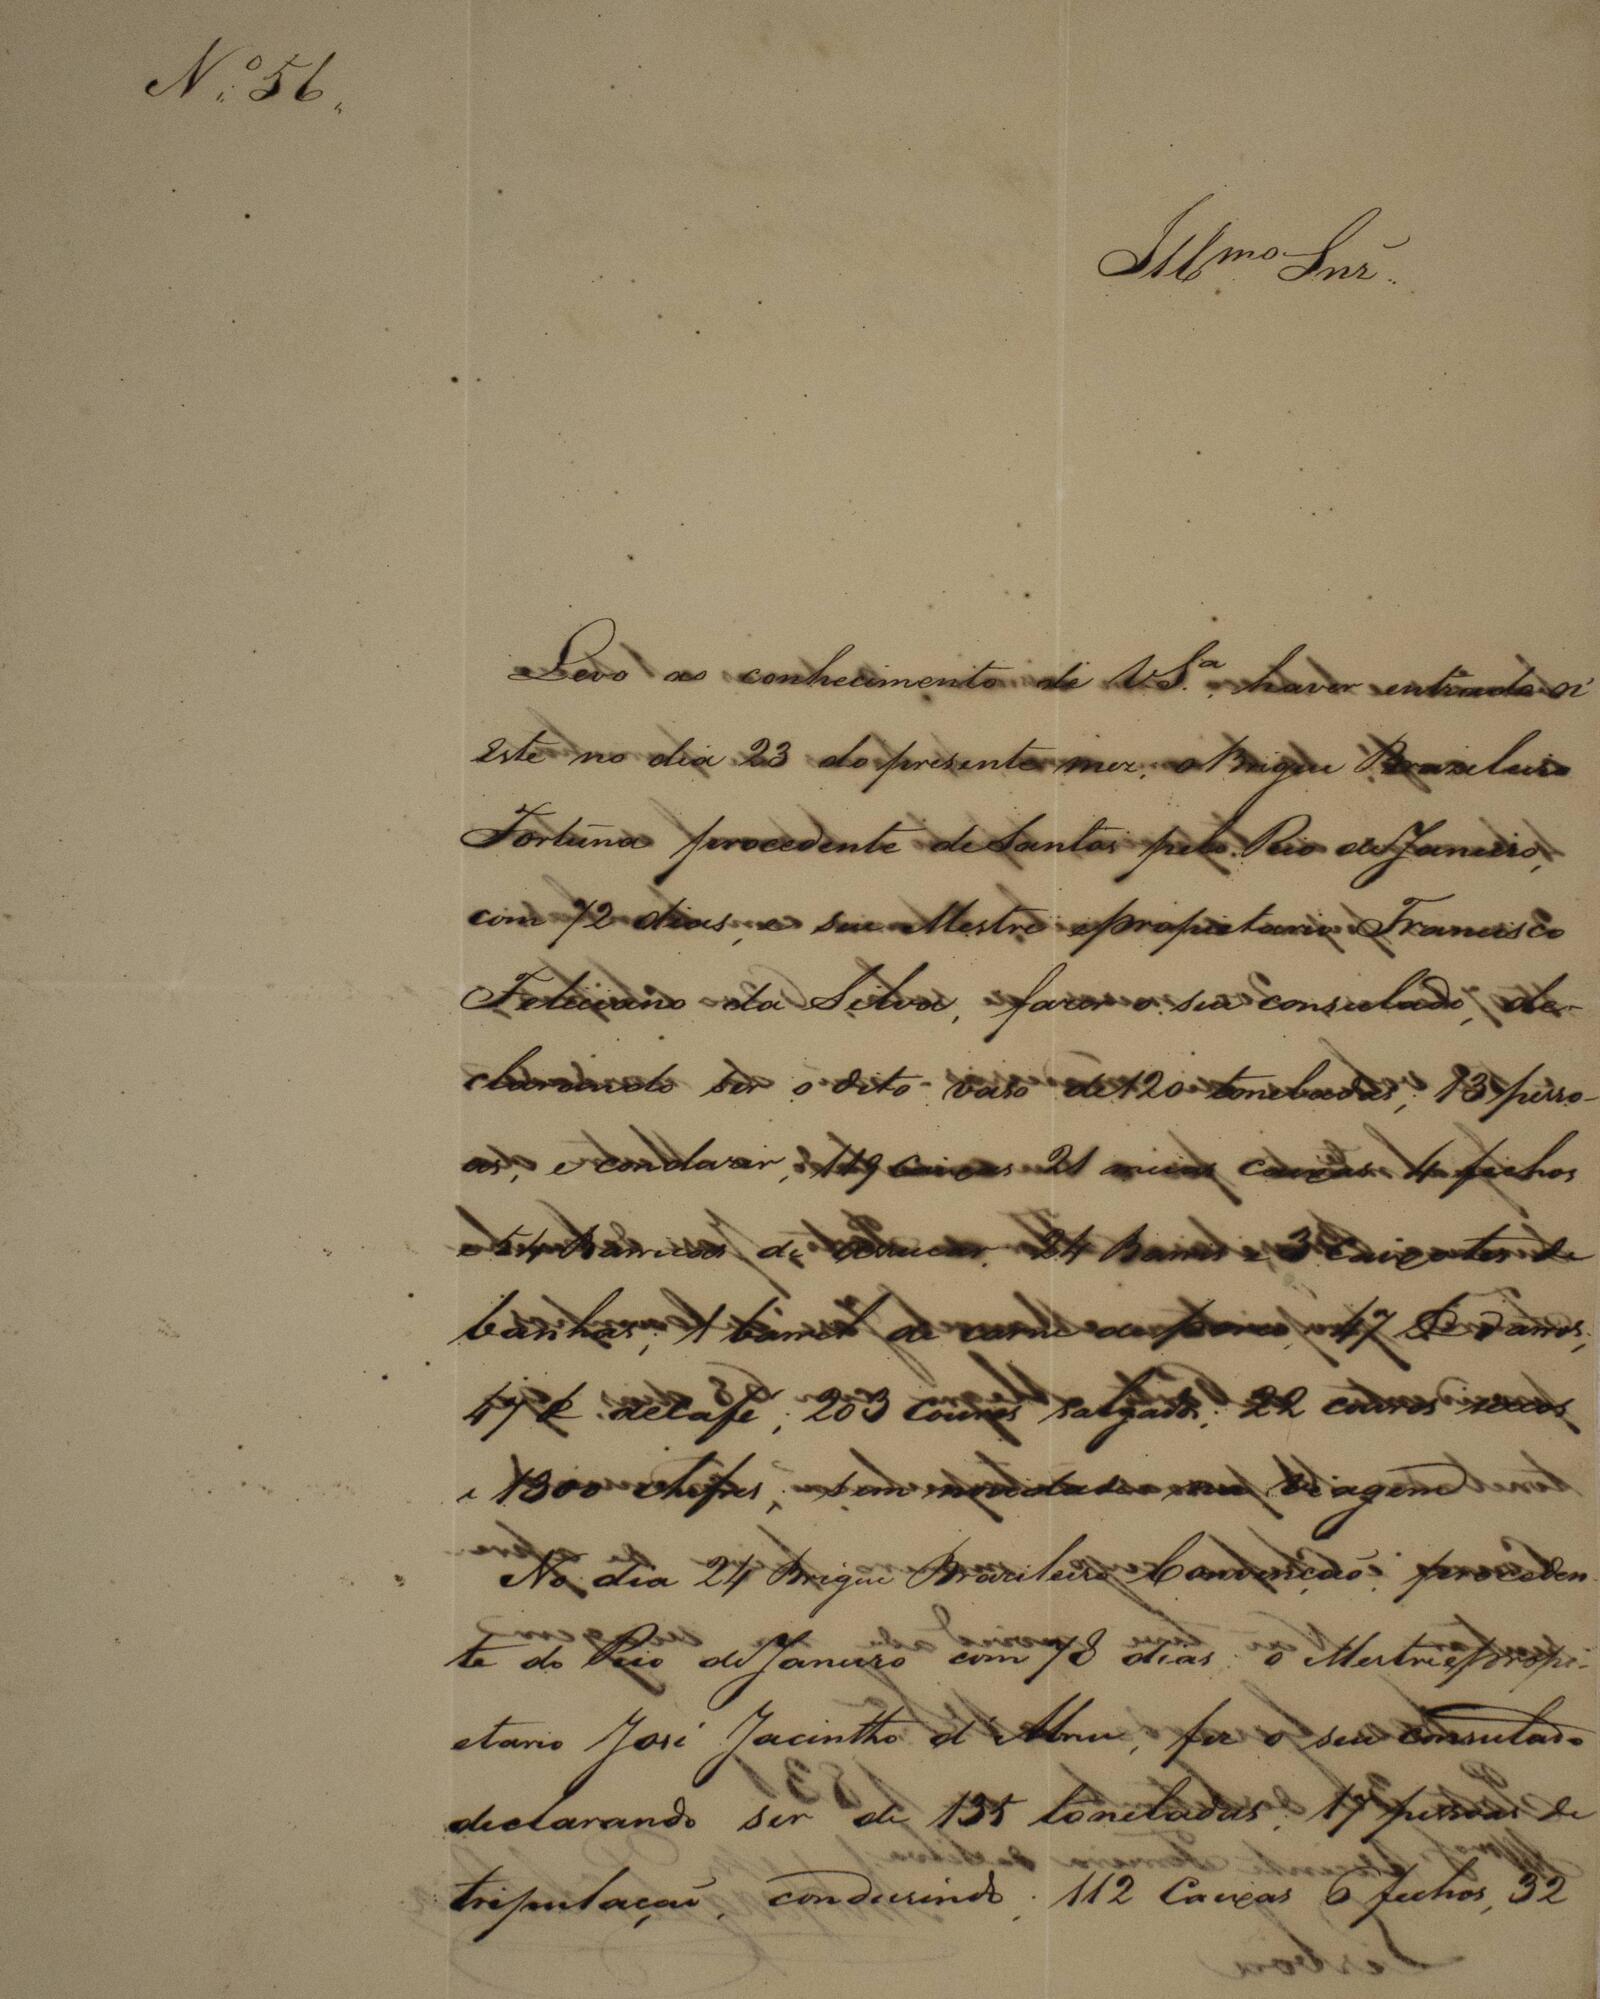 Nº 56.
Illmo Snr.
Levo ao conhecimento de V.Sª. haver entrado n'
este no dia 23 do presente mez, o Brigue Brazileiro
Fortuna procedente de Santos pelo Rio de Janeiro,
com 72 dias, e seu Mestre e propietario Francisco
Feliciano da Silva, fazer o seu consulado, de-
clarando ser o dito vaso de 120 tonelladas, 13 pesso-
as, e conduzir, 119 Caixas 21 meias caixas 4 fechos
e 54 Barricas de assucar, 24 Barris e 3 Caixotes de
banhas, 1 barril de carne de porco, 47 d'arros,
47 de Café, 203 Couros salgados, 22 couros seccos
e 1300 chifres, sem novidade na viagem
No dia 24 Brigue Brazileiro Convenção, proceden-
te do Rio de Janeiro com 78 dias o Mestre e propi-
etario José Jacintho d'Abreu, fez o seu consulado
declarando ser de 135 toneladas, 17 pessoas de
tripulação, conduzindo, 112 Caixas 6 fechos, 32